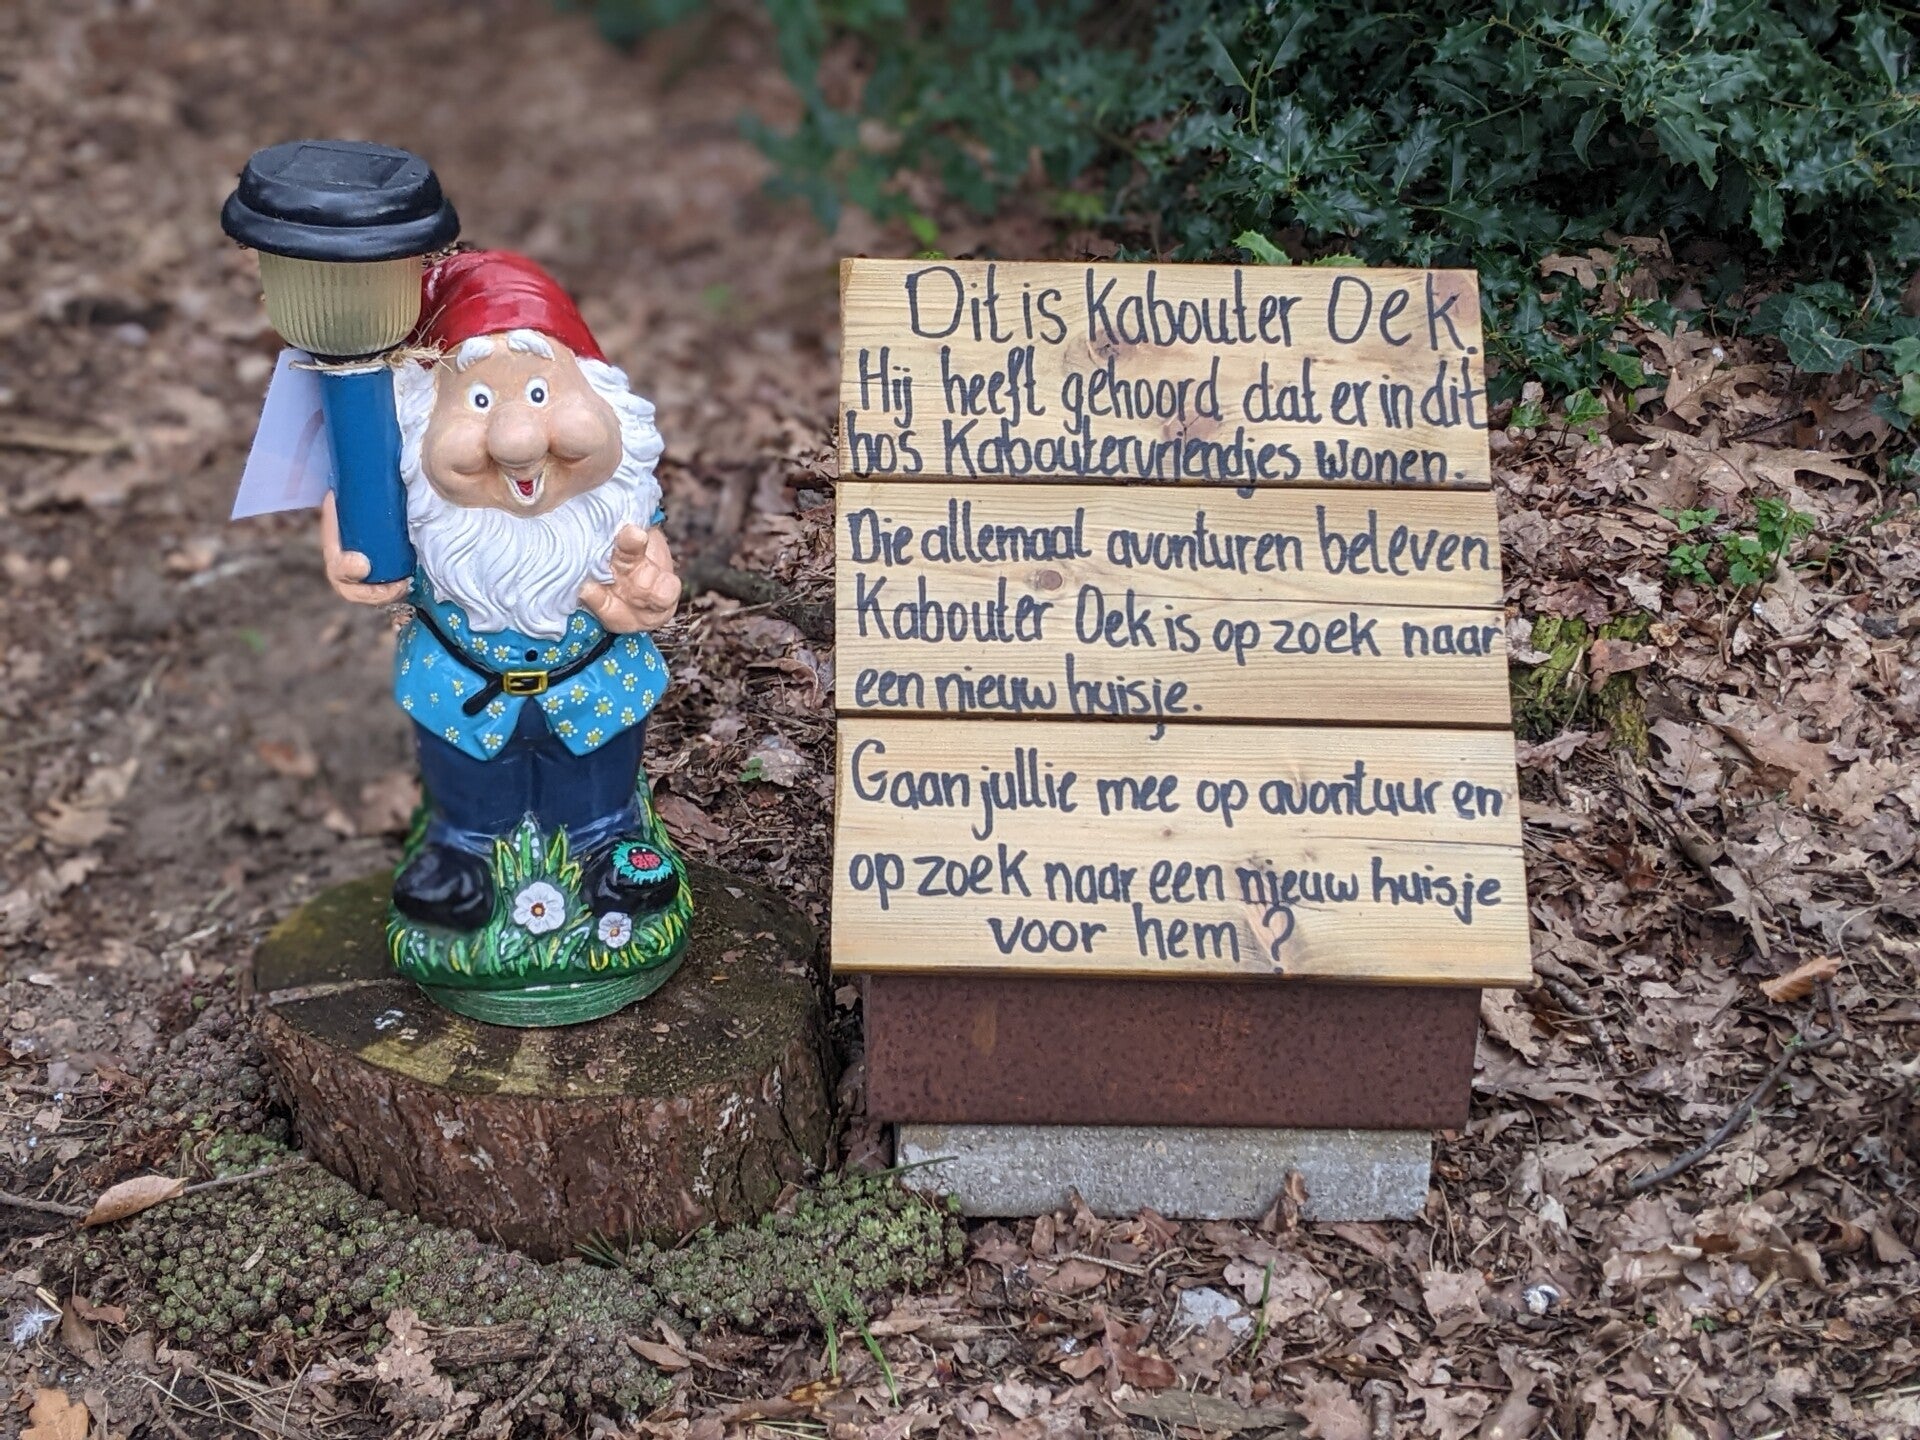 Dit is Kabouter Oek.
Hij heeft gehoord dat er in dit
bos Kaboutervriendjes wonen.
Die allemaal avonturen beleven
Kabouter Oek is op zoek naar
een nieuw huisje.
Gaan jullie mee op avontuur en
op zoek naar een nieuw huisje
voor hem?